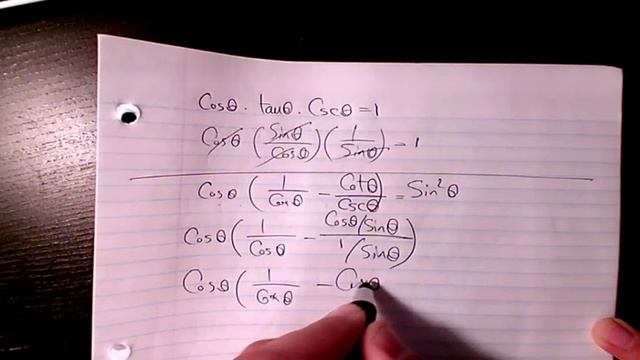 Cosθ · tanθ · Cscθ = 1
Cosθ (Sinθ/Cosθ)(1/Sinθ) = 1
Cosθ (1/Cosθ - Cotθ/Cscθ) = Sin²θ
Cosθ (1/Cosθ - (Cosθ/Sinθ)/(1/Sinθ))
Cosθ (1/Cosθ - Cosθ